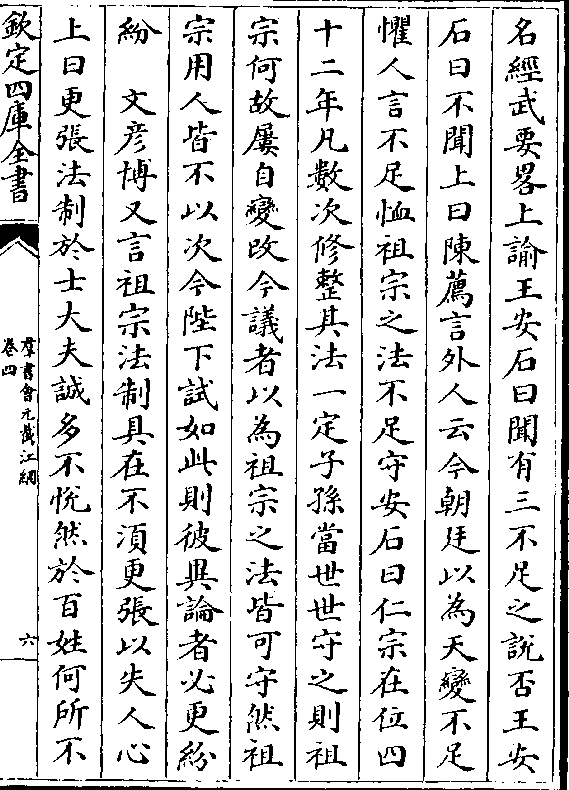 名經武要畧上諭王安石曰聞有三不足之說否王安
石曰不聞上曰陳薦言外人云今朝廷以為天變不足
懼人言不足恤祖宗之法不足守安石曰仁宗在位四
十二年凡數次修整其法一定子孫當世世守之則祖
宗何故屢自變改今議者以為祖宗之法皆可守然祖
宗用人皆不以次今陛下試如此則彼異論者必更紛
紛　文彦博又言祖宗法制具在不湏更張以失人心
上曰更張法制於士大夫誠多不悅然於百姓何所不
欽定四庫全書
羣書會元截江網
卷四
六